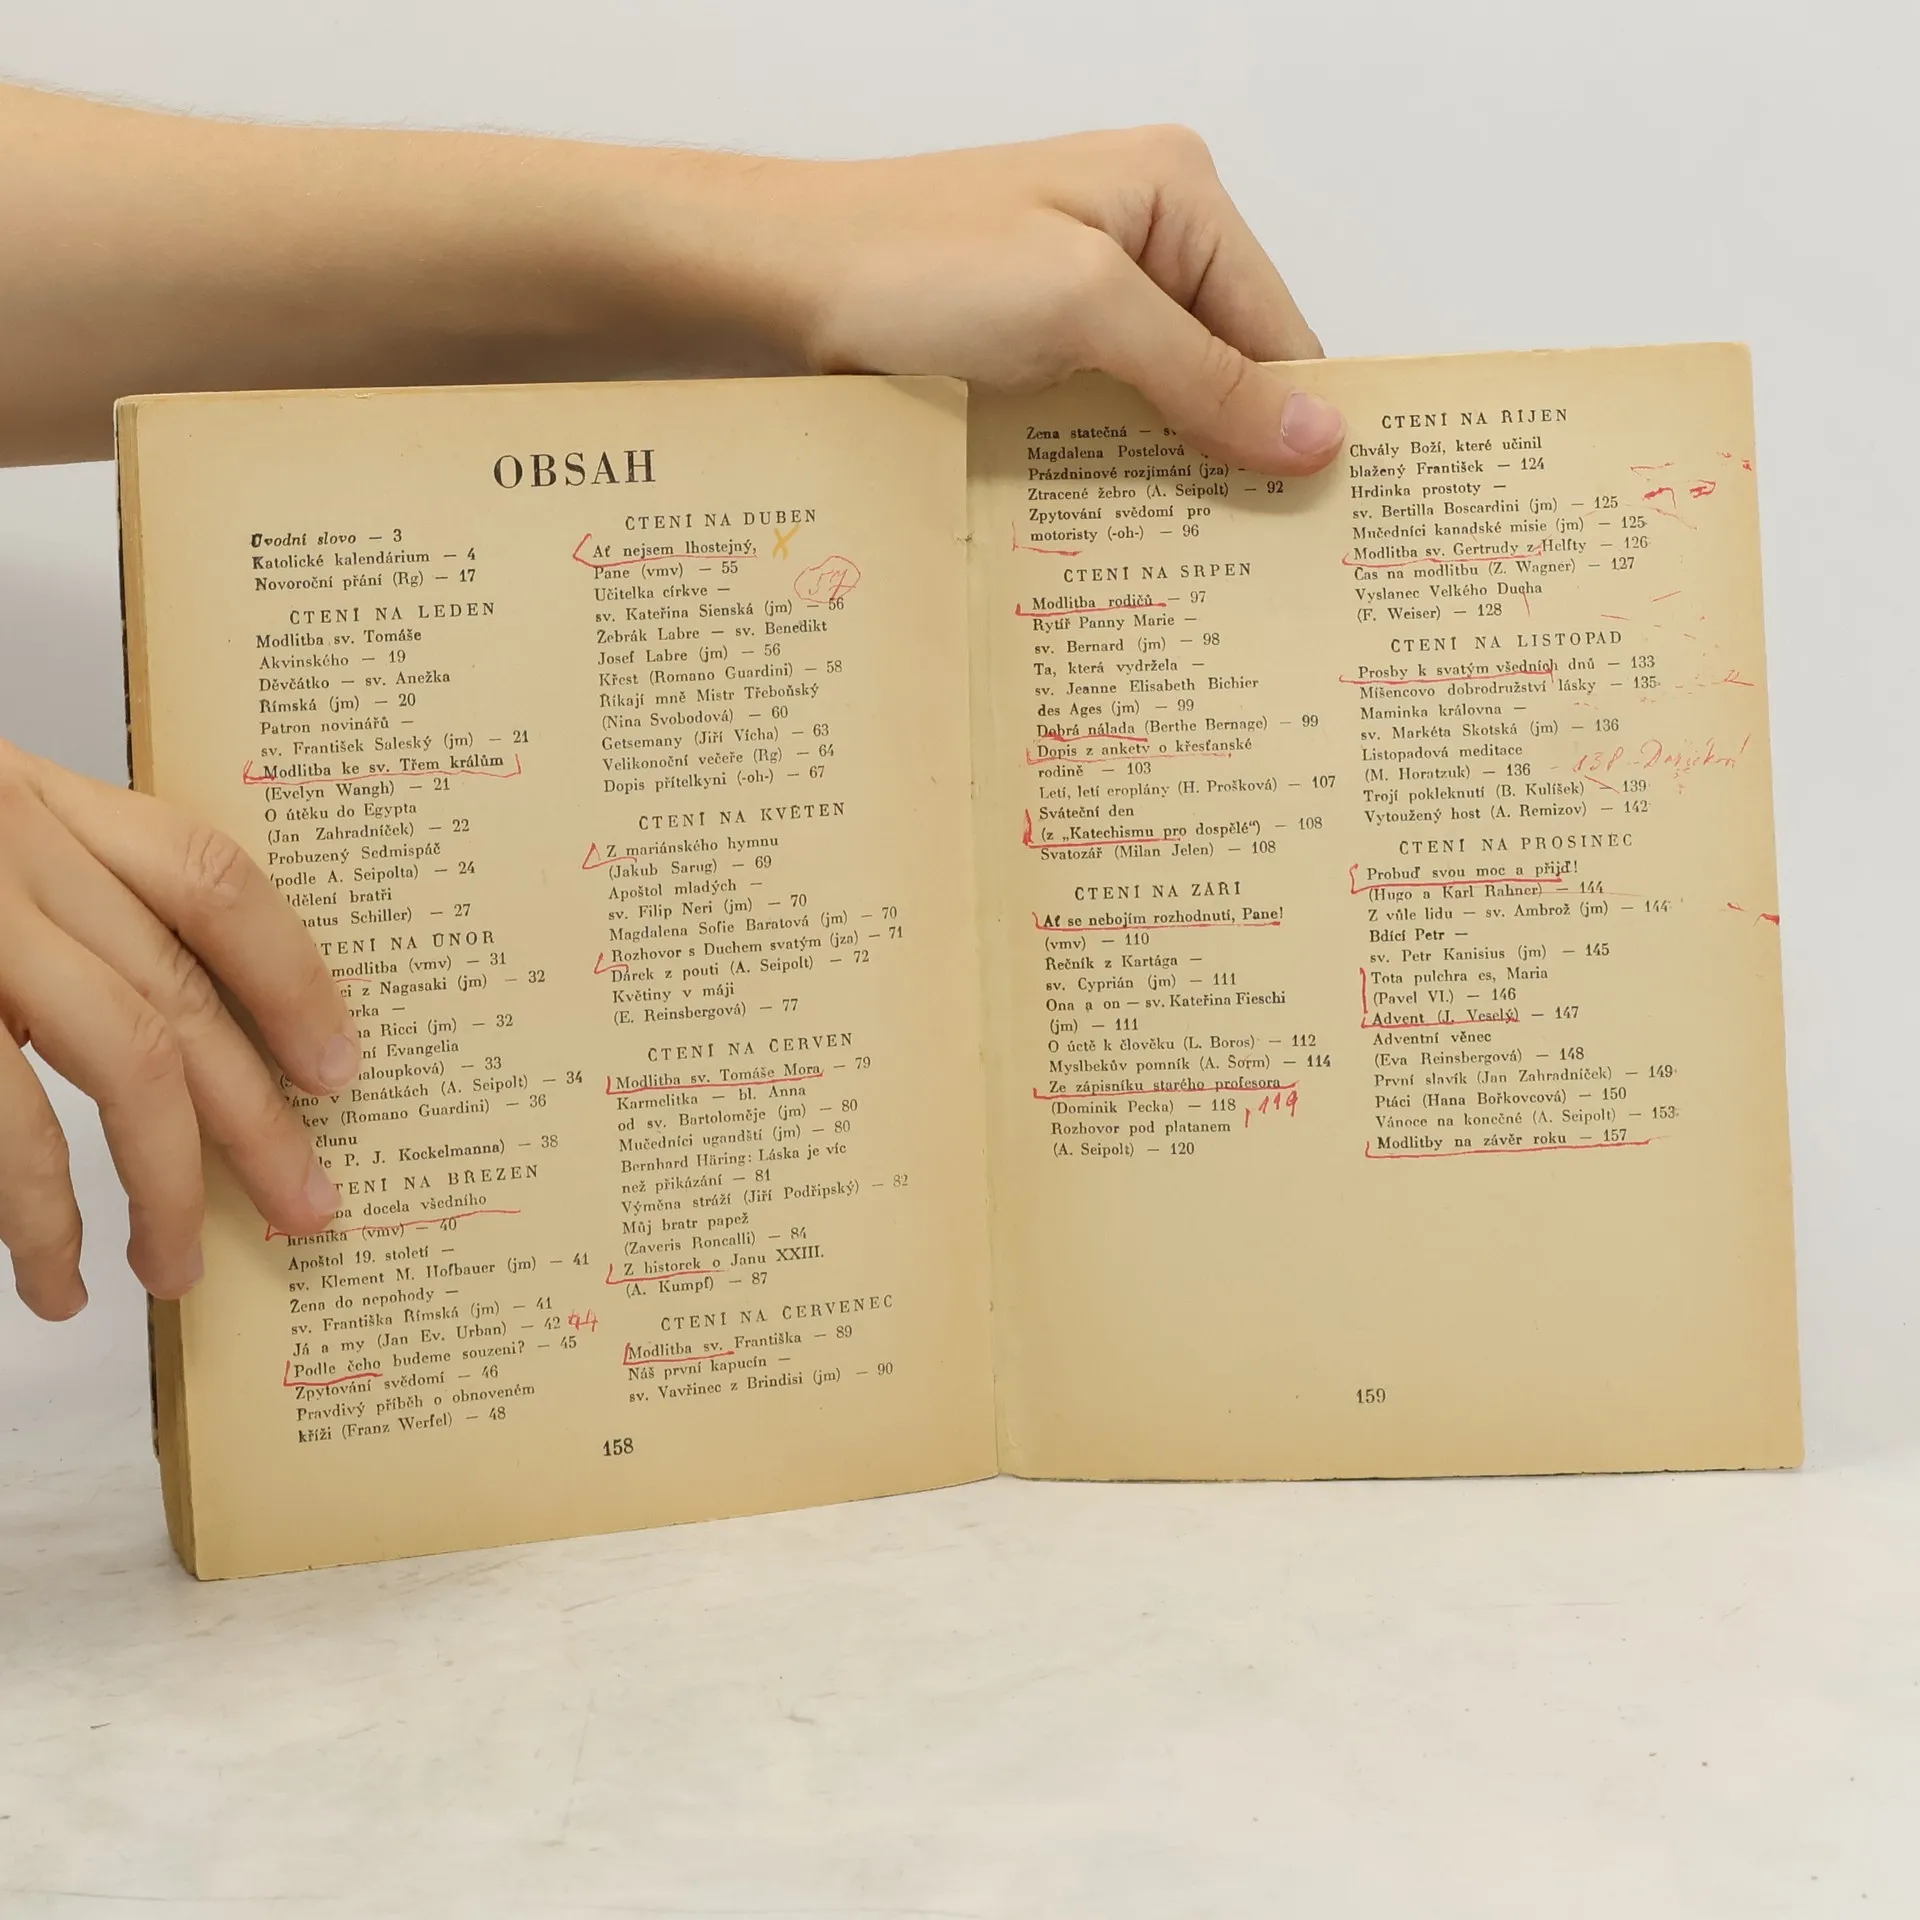 OBSAH
Úvodní slovo — 3
Katolické kalendárium — 4
Novoroční přání (Rg) — 17
ČTENÍ NA LEDEN
Modlitba sv. Tomáše
Akvinského — 19
Děvčátko — sv. Anežka
Římská (jm) — 20
Patron novinářů —
sv. František Saleský (jm) — 21
Modlitba ke sv. Třem králům
(Evelyn Wangh) — 21
O útěku do Egypta
(Jan Zahradníček) — 22
Probuzený Sedmispáč
(podle A. Seipolta) — 24
dělení bratři
natus Schiller) — 27
TENÍ NA ÚNOR
modlitba (vmv) — 31
ci z Nagasaki (jm) — 32
orka —
na Ricci (jm) — 32
ní Evangelia
aloupková) — 33
áno v Benátkách (A. Seipolt) — 34
kev (Romano Guardini) — 36
člunu
le P. J. Kockelmanna) — 38
TENÍ NA BŘEZEN
ba docela všedního
hříšníka (vmv) — 40
Apoštol 19. století —
sv. Klement M. Hofbauer (jm) — 41
Žena do nepohody —
sv. Františka Římská (jm) — 41
Já a my (Jan Ev. Urban) — 42 44
Podle čeho budeme souzeni? — 45
Zpytování svědomí — 46
Pravdivý příběh o obnoveném
kříži (Franz Werfel) — 48
ČTENÍ NA DUBEN
Ať nejsem lhostejný, X
Pane (vmv) — 55
Učitelka církve — 57
sv. Kateřina Sienská (jm) — 56
Žebrák Labre — sv. Benedikt
Josef Labre (jm) — 56
Křest (Romano Guardini) — 58
Říkají mně Mistr Třeboňský
(Nina Svobodová) — 60
Getsemany (Jiří Vícha) — 63
Velikonoční večeře (Rg) — 64
Dopis přítelkyni (-oh-) — 67
ČTENÍ NA KVĚTEN
Z mariánského hymnu
(Jakub Sarug) — 69
Apoštol mladých —
sv. Filip Neri (jm) — 70
Magdalena Sofie Baratová (jm) — 70
Rozhovor s Duchem svatým (jza) — 71
Dárek z pouti (A. Seipolt) — 72
Květiny v máji
(E. Reinsbergová) — 77
ČTENÍ NA ČERVEN
Modlitba sv. Tomáše Mora — 79
Karmelitka — bl. Anna
od sv. Bartoloměje (jm) — 80
Mučedníci ugandští (jm) — 80
Bernhard Häring: Láska je víc
než přikázání — 81
Výměna stráží (Jiří Podřipský) — 82
Můj bratr papež
(Zaveris Roncalli) — 84
Z historek o Janu XXIII.
(A. Kumpf) — 87
ČTENÍ NA ČERVENEC
Modlitba sv. Františka — 89
Náš první kapucín —
sv. Vavřinec z Brindisi (jm) — 90
158
Žena statečná —
Magdalena Postelová
Prázdninové rozjímání (jza) —
Ztracené žebro (A. Seipolt) — 92
Zpytování svědomí pro
motoristy (-oh-) — 96
ČTENÍ NA SRPEN
Modlitba rodičů — 97
Rytíř Panny Marie —
sv. Bernard (jm) — 98
Ta, která vydržela —
sv. Jeanne Elisabeth Bichier
des Ages (jm) — 99
Dobrá nálada (Berthe Bernage) — 99
Dopis z ankety o křesťanské
rodině — 103
Letí, letí eroplány (H. Prošková) — 107
Sváteční den
(z „Katechismu pro dospělé“) — 108
Svatozář (Milan Jelen) — 108
ČTENÍ NA ZÁŘÍ
Ať se nebojím rozhodnutí, Pane!
(vmv) — 110
Řečník z Kartága —
sv. Cyprián (jm) — 111
Ona a on — sv. Kateřina Fieschi
(jm) — 111
O úctě k člověku (L. Boros) — 112
Myslbekův pomník (A. Šorm) — 114
Ze zápisníku starého profesora
(Dominik Pecka) — 118, 119
Rozhovor pod platanem
(A. Seipolt) — 120
ČTENÍ NA ŘÍJEN
Chvály Boží, které učinil
blažený František — 124
Hrdinka prostoty —
sv. Bertilla Boscardini (jm) — 125
Mučedníci kanadské misie (jm) — 125
Modlitba sv. Gertrudy z Helfty — 126
Čas na modlitbu (Z. Wagner) — 127
Vyslanec Velkého Ducha
(F. Weiser) — 128
ČTENÍ NA LISTOPAD
Prosby k svatým všedních dnů — 133
Míšencovo dobrodružství lásky — 135
Maminka královna —
sv. Markéta Skotská (jm) — 136
Listopadová meditace
(M. Horatzuk) — 136 - 138 -
Trojí pokleknutí (B. Kulíšek) — 139
Vytoužený host (A. Remizov) — 142
ČTENÍ NA PROSINEC
Probuď svou moc a přijď!
(Hugo a Karl Rahner) — 144
Z vůle lidu — sv. Ambrož (jm) — 144
Bdící Petr —
sv. Petr Kanisius (jm) — 145
Tota pulchra es, Maria
(Pavel VI.) — 146
Advent (J. Veselý) — 147
Adventní věnec
(Eva Reinsbergová) — 148
První slavík (Jan Zahradníček) — 149
Ptáci (Hana Bořkovcová) — 150
Vánoce na konečné (A. Seipolt) — 153
Modlitby na závěr roku — 157
159